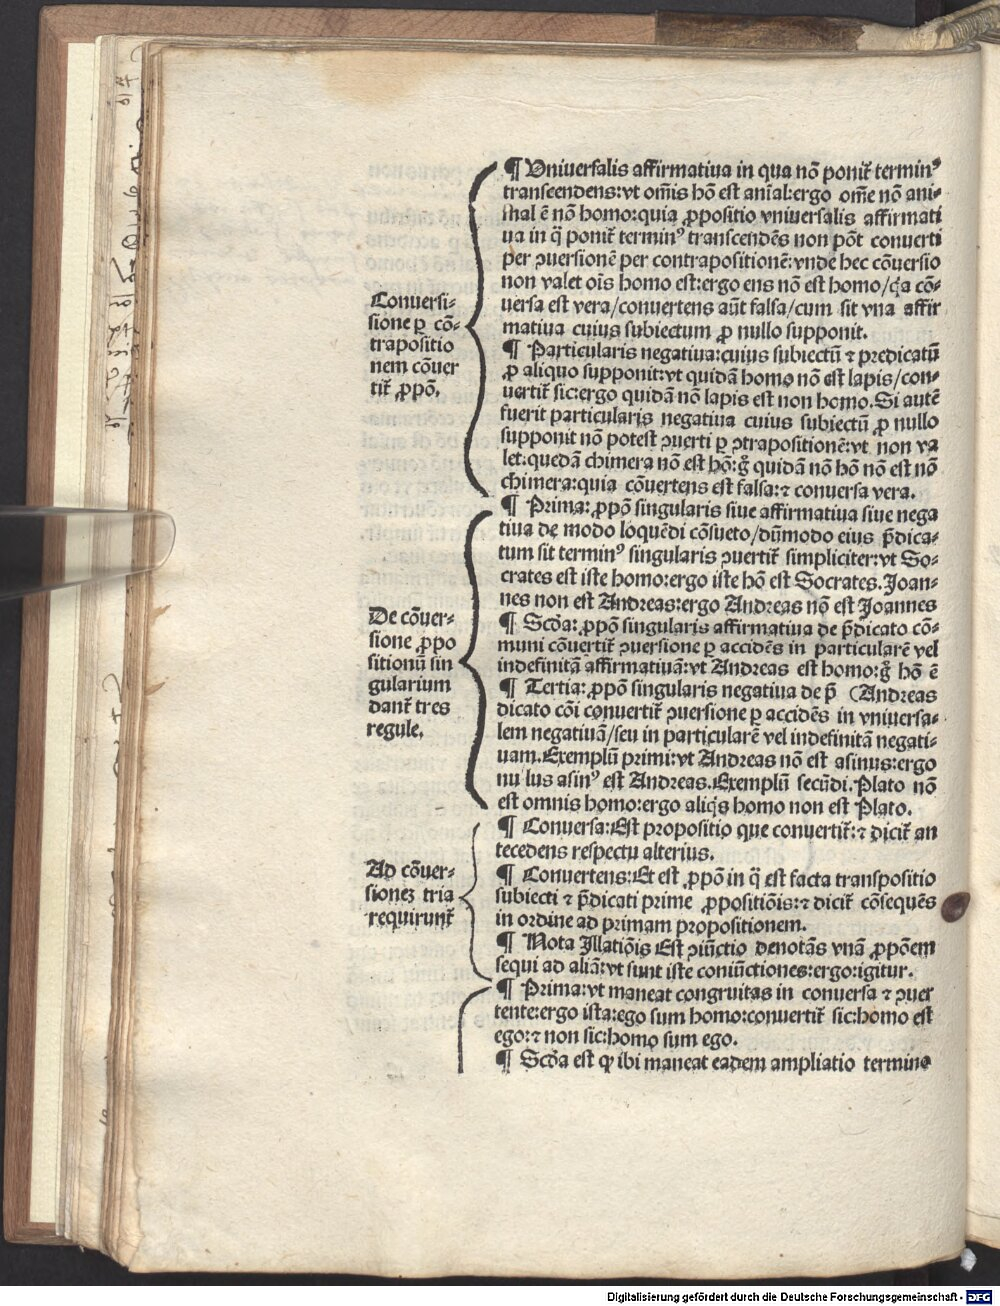 Conuersi-
sione ꝑ cõ-
trapositio
nem cõuer
tit᷑ ꝓpõ.
¶ Uniuersalis affirmatiua in qua nõ ponit᷑ terminꝰ
transcendens:vt om̃is hõ est aĩal:ergo om̃e nõ ani-
mal ẽ nõ homo:quia ꝓpositio vniuersalis affirmati
ua in q̃ ponit᷑ terminꝰ transcendẽs non põt conuerti
per ꝯuersionẽ per contrapositionẽ:vnde hec cõuersio
non valet oĩs homo est:ergo ens nõ est homo/q̃a cõ-
uersa est vera/conuertens aũt falsa/cum sit vna affir
matiua cuius subiectum ꝓ nullo supponit.
¶ Particularis negatiua:cuius subiectũ ⁊ predicatũ
ꝓ aliquo supponit:vt quidã homo nõ est lapis/con-
uertit᷑ sic:ergo quidã nõ lapis est non homo.Si autẽ
fuerit particularis negatiua cuius subiectũ ꝓ nullo
supponit nõ potest ꝯuerti ꝑ ꝯtrapositionẽ:vt non va
let:quedã chimera nõ est hõ:g̊ quidã nõ hõ nõ est nõ
chimera:quia cõuertens est falsa:⁊ conuersa vera.
De cõuer-
sione ꝓpo
sitionũ sin
gularium
dant᷑ tres
regule.
¶ Prima:ꝓpõ singularis siue affirmatiua siue nega
tiua de modo loquẽdi cõsueto/dũmodo eius p̃dica-
tum sit terminꝰ singularis ꝯuertit᷑ simpliciter:vt So-
crates est iste homo:ergo iste hõ est Socrates.Joan-
nes non est Andreas:ergo Andreas nõ est Joannes
¶ Scđa:ꝓpõ singularis affirmatiua de p̃dicato cõ-
muni cõuertit᷑ ꝯuersione ꝑ accidẽs in particularẽ vel
indefinitã affirmatiuã:vt Andreas est homo:g̊ hõ ẽ
¶ Tertia:ꝓpõ singularis negatiua de p̃ (Andreas
dicato cõi conuertit᷑ ꝯuersione ꝑ accidẽs in vniuersa-
lem negatiuã/seu in particularẽ vel indefinitã negati-
uam.Exemplũ primi:vt Andreas nõ est asinus:ergo
nu lus asinꝰ est Andreas.Exemplũ secũdi.Plato nõ
est omnis homo:ergo aliq̃s homo non est Plato.
Ad cõuer-
sionez tria
requirunt᷑
¶ Conuersa:Est propositio que conuertit᷑:⁊ dicit᷑ an
tecedens respectu alterius.
¶ Conuertens:Et est ꝓpõ in q̃ est facta transpositio
subiecti ⁊ p̃dicati prime ꝓpositiõis:⁊ dicit᷑ cõsequẽs
in ordine ad primam propositionem.
¶ Nota Illatiõis Est ꝯiũctio denotãs vnã ꝓpõem
sequi ad aliã:vt sunt iste coniũctiones:ergo:igitur.
¶ Prima:vt maneat congruitas in conuersa ⁊ ꝯuer
tente:ergo ista:ego sum homo:conuertit᷑ sic:homo est
ego:⁊ non sic:homo sum ego.
¶ Scđa est ꝙ ibi maneat eadem ampliatio termino
Digitalisierung gefördert durch die Deutsche Forschungsgemeinschaft - DFG